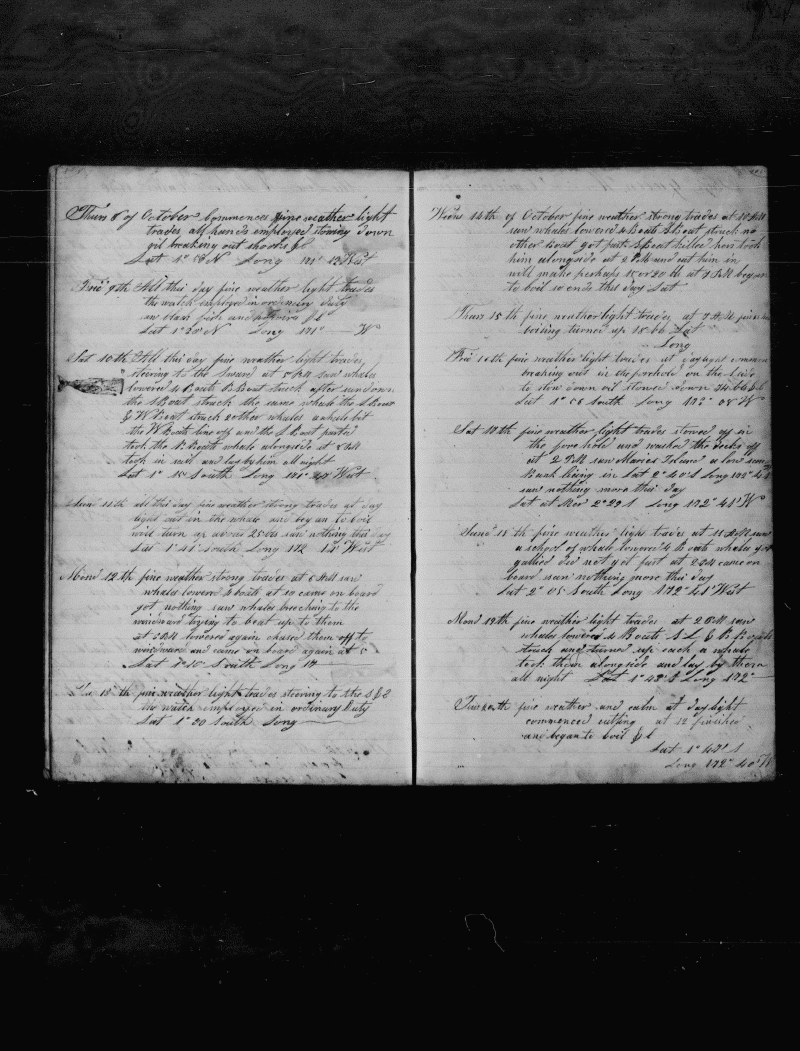 Thurs 8 of October Commences fine weather light
trades all hands employed stowing down
oil breaking out shooks &c
Lat 1° 18 N Long 171° West
Frid 9th All this day fine weather light trades
the watch employed in ordinary duty
saw black fish and &c
Lat 1° 28 N Long 171° W
Sat 10th All this day fine weather light trades
steering to the at 5 PM saw whales
lowered 4 Boats B Boat struck after sundown
the S Boat struck the same whale the L Boat
& W Boat struck other whales a whale bit
the W Boats line off and the L Boat parted
took the B Boats whale alongside at 8 PM
took in sail and lay by him all night
Lat 1° 15 South Long 171° 20 West
Sun 11th all this day fine weather strong trades at day
light cut in the whale and began to boil
will turn up about 25 bbs saw nothing this day
Lat 1° 41' South Long 172 15' West
Mond 12th fine weather strong trades at 6 AM saw
whales lowered 4 boats at 10 came on board
got nothing saw whales breeching to the
windward trying to beat up to them
at 2 PM lowered again chased them off to
windward and came on board again at 5
Lat South Long 17
13th fine weather light trades steering to the S & E
the watch employed in ordinary Duty
Lat 1° 20 South Long
Weons 14th of October fine weather strong trades at 10 AM
saw whales lowered 4 Boats S Boat struck no
other Boat got fast S Boat killed him took
him alongside at 2 PM and cut him in
will make perhaps 15 or 20 bb at 7 PM began
to boil so ends this day Lat
Thurs 15th fine weather light trades at 7 AM
boiling turned up 18 bb Lat
Long
Frid 16th fine weather light trades at daylight commenced
breaking out the forehold on the
to stow down oil stowed down 74 bb &c
Lat 1° 58 South Long 172° 08' W
Sat 17th fine weather light trades stowed off in
the fore hold and washed the decks off
at 2 PM saw Maries Island a low
Bank being in Lat 2° 40' S Long 172° 4
saw nothing more this day
Lat at Mer 2° 29 S Long 172° 41' W
Sund 18th fine weather light trades at 11 AM saw
a school of whale lowered 4 boats whales got
gallied did not get fast at 2 PM came on
board saw nothing more this day
Lat 2° 05 South Long 172° 41 West
Mond 19th fine weather light trades at 2 PM saw
whales lowered 4 Boats S L & B Boats
struck and turned up each a whale
took them alongside and lay by them
all night Lat 1° 48' S Long 172°
Tues 20th fine weather and calm at daylight
commenced cutting at 12 finished
and began to boil &c
Lat 1° 47' S
Long 172° 40' W